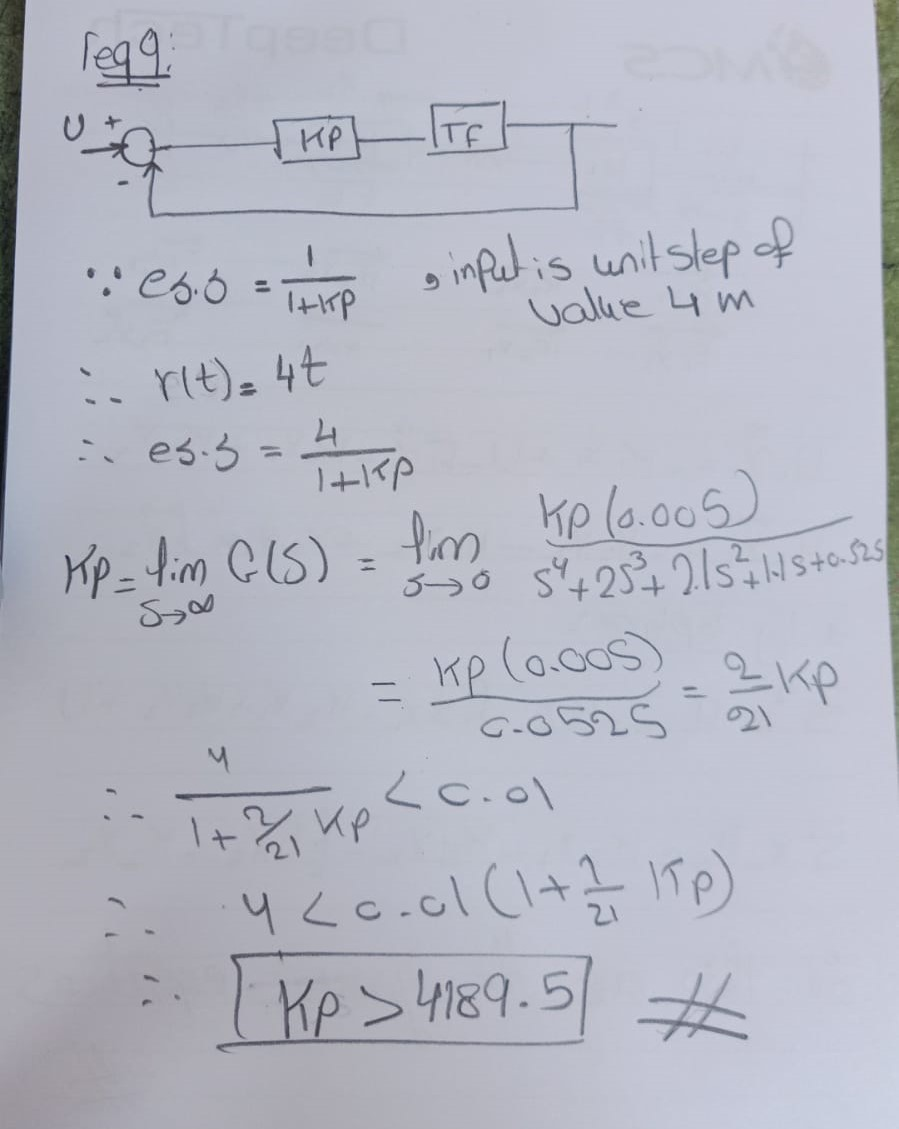 req 9:
U + - KP TF
∵ es.s = 1/(1+KP) , input is unit step of value 4 m
∴ r(t) = 4t
∴ es.s = 4/(1+KP)
KP = lim S→∞ G(S) = lim S→0 KP(0.005)/(S^4+2S^3+2.1S^2+1.1S+0.525
= KP(0.005)/0.0525 = 2/21 KP
∴ 4/(1+2/21 KP) < 0.01
∴ 4 < 0.01(1+2/21 KP)
∴ KP > 4189.5